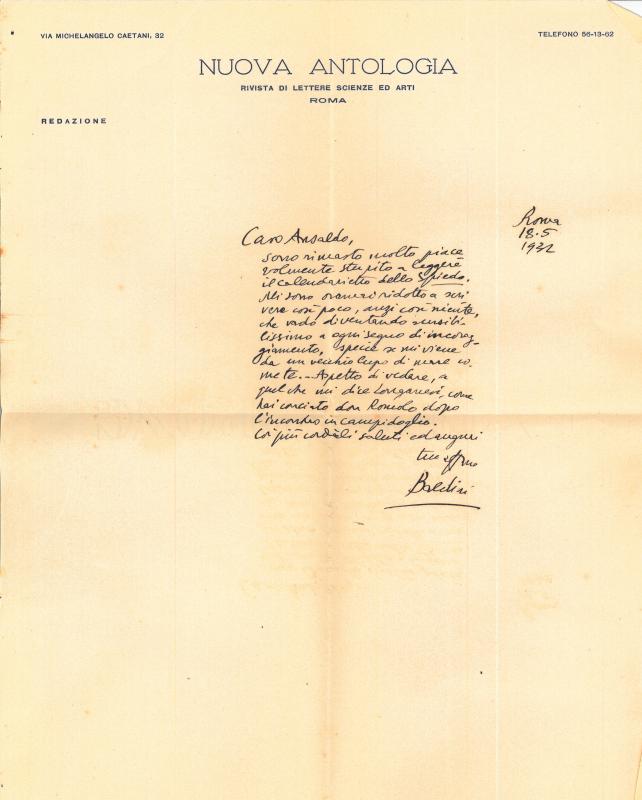 VIA MICHELANGELO CAETANI, 32
TELEFONO 56-13-62
NUOVA ANTOLOGIA
RIVISTA DI LETTERE SCIENZE ED ARTI
ROMA
REDAZIONE
Roma
18.5
193
Caro Ansaldo,
sono rimasto molto piace
volmente stupito a leggere
il calendarietto dello Spiedo.
Mi sono oramai ridotto a scri
vere così poco, anzi così niente,
che vado diventando sensibi-
lissimo a ogni segno di incorag-
giamento, specie se mi viene
da un vecchio lupo di mare co-
me te... Aspetto di vedere, a
quel che mi dice Longanesi, come
hai conciato don Romolo dopo
l'incontro in campidoglio.
Coi più cordiali saluti ed auguri
tuo affmo
Baldini